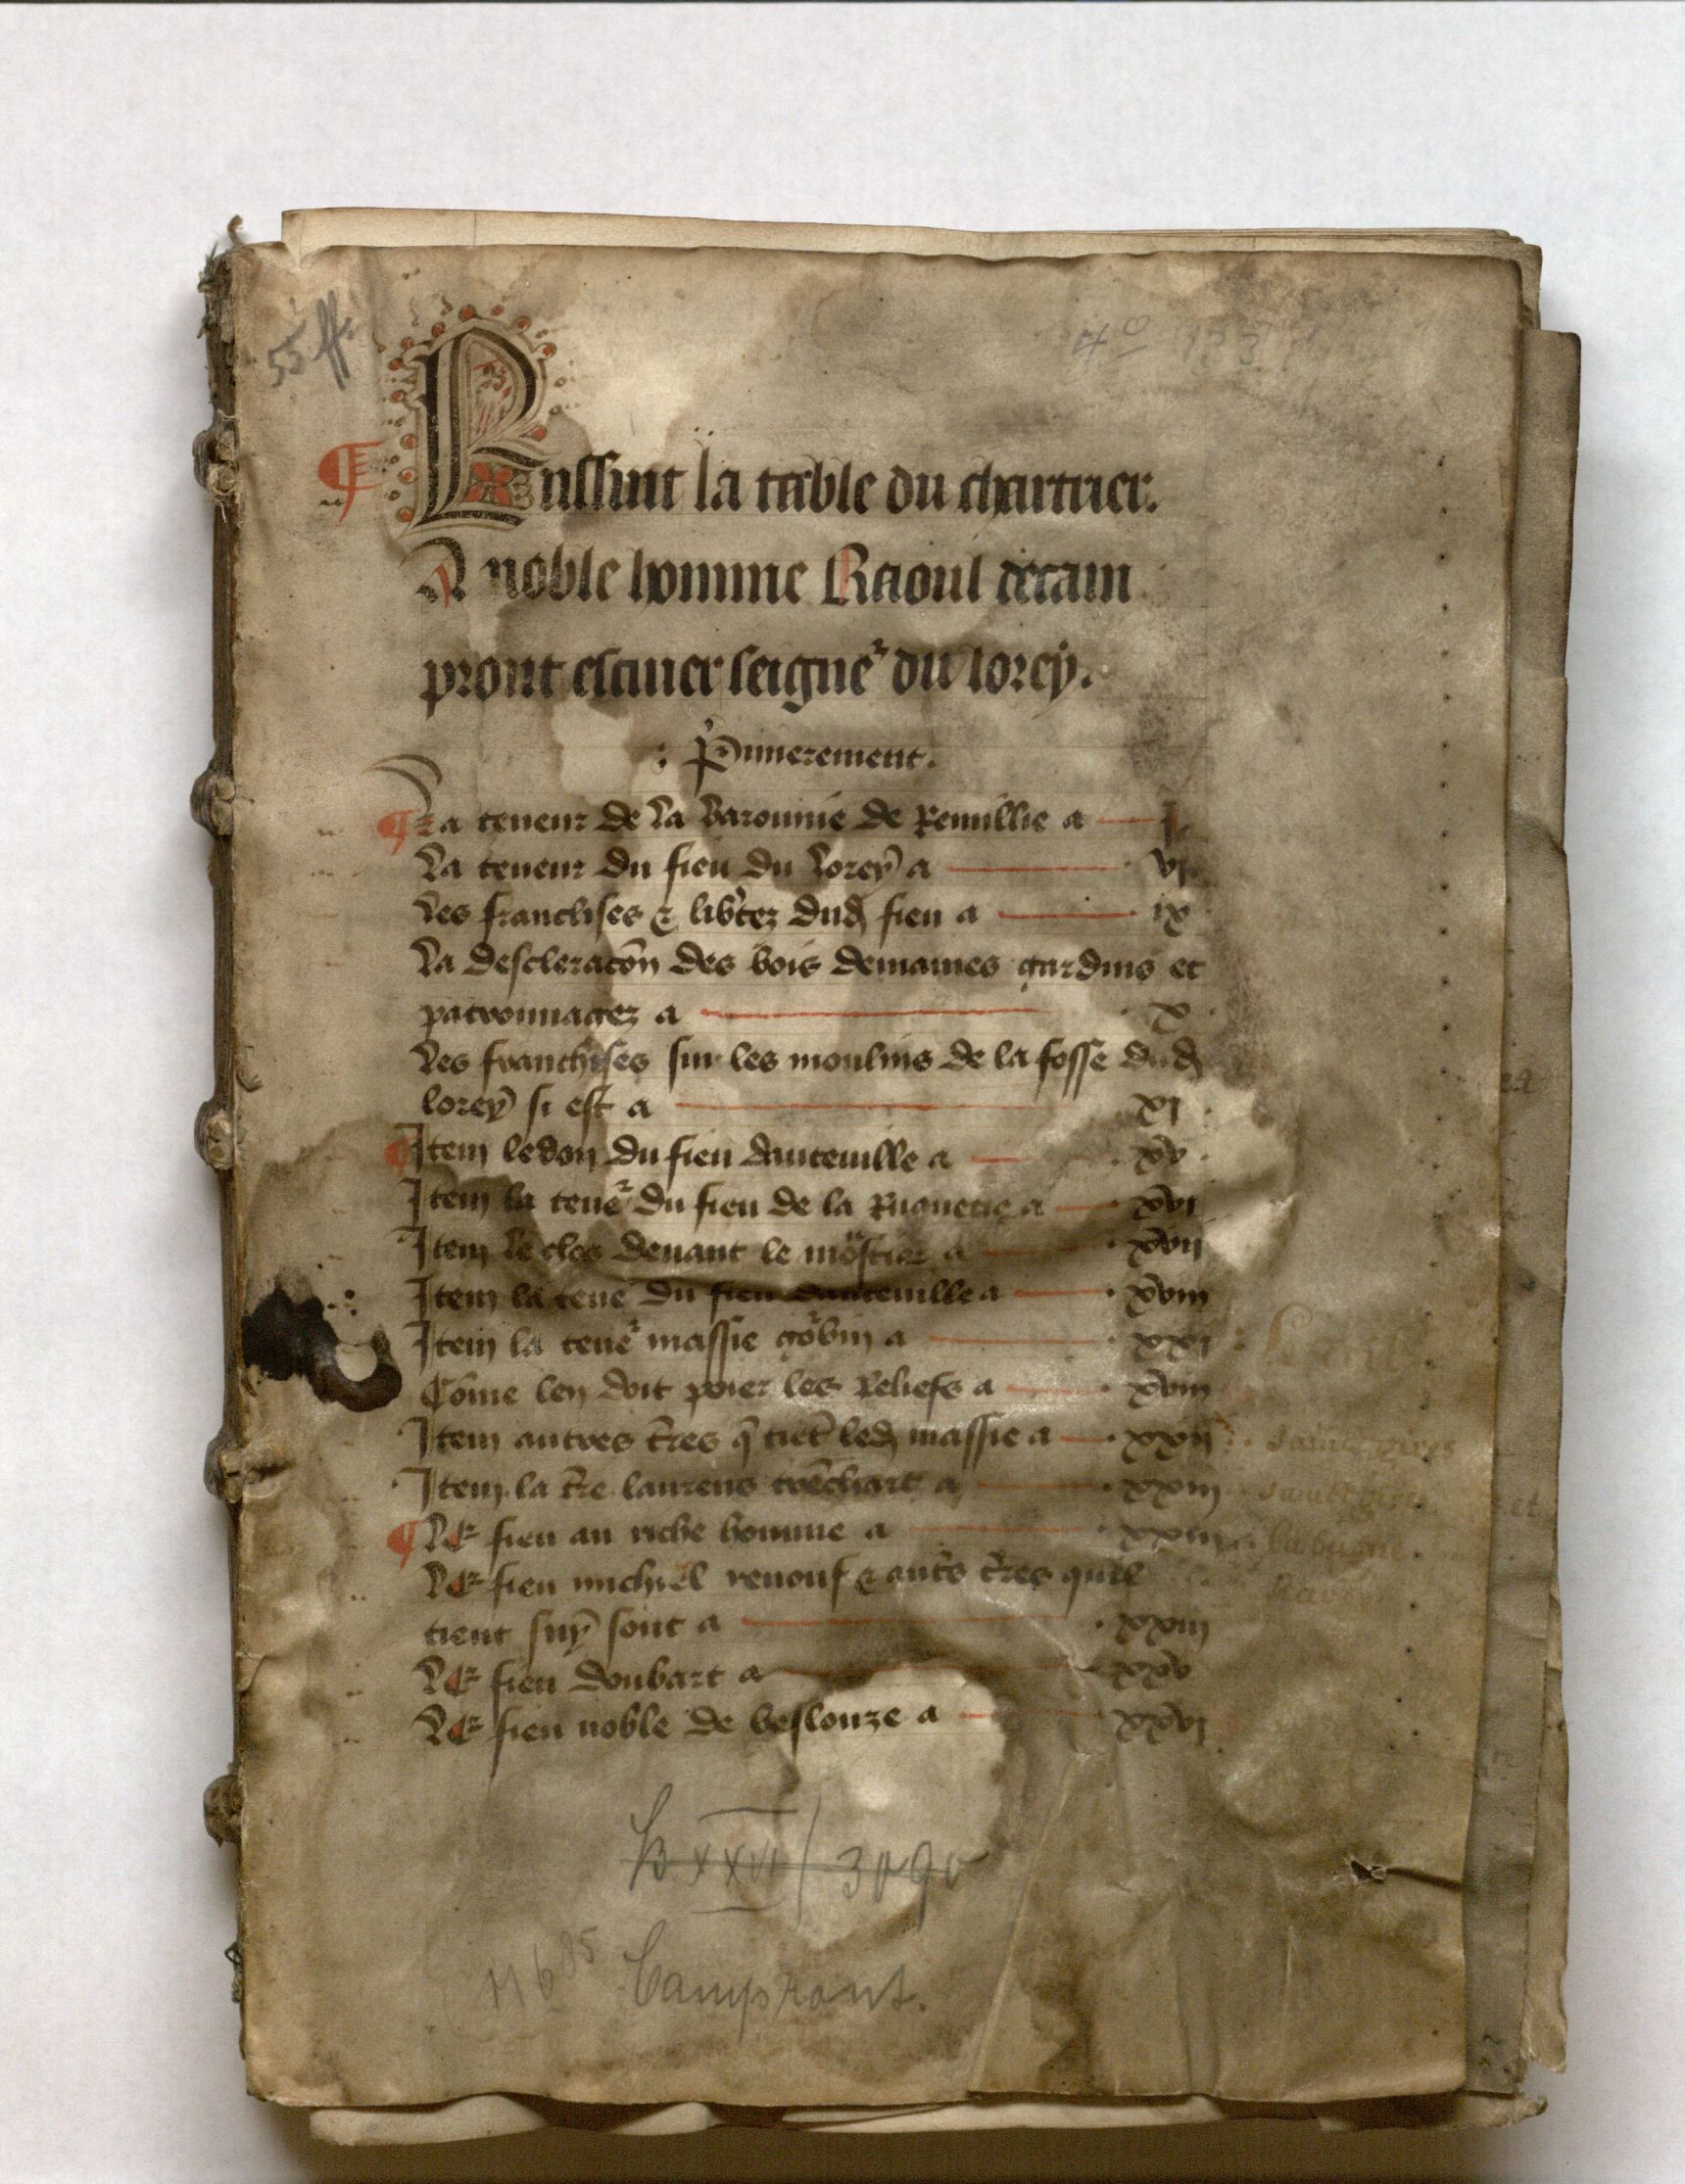 55 ff.
4º 133
¶ Enssuit la table du chartrier.
A noble homme Raoul decam
pront escuier seigneᷣ du lorey.
: P̾imerement.
¶ La teneur de la baronnie de Remillie a — i
La teneur du fieu du lorey a — vi
Les franchises ⁊ lib̾tez dud̷ fieu a — ix
La descleracōn des bois demaines gardins et
patronnagez a — x
Les franchises sur les moulins de la fosse dud̷
lorey si est a — xi
Item le don du fieu dauteuille a — xv
Item la teneᷣ du fieu de la Ruquetie a — xvi
Item le clos deuant le mostier a — xvii
Item la teneᷣ du fieu dauteuille a — xviii
Item la teneᷣ massie gobin a — xxi
Cōme len doit poier les Reliefs a — xviii
Item autres t̄res q̄ tiēt led̷ massie a — xxii
Item la t̄re laurens trēchart a — xxiii
¶ LE fieu au riche homme a — xxiii
LE fieu michiel renouf ⁊ aut̄s t̄res quil
tient suy sont a — xxiii
LE fieu doubart a — xxv
LE fieu noble de beslouze a — xxvi
B XXVI / 3090
M 6 85 Campront.